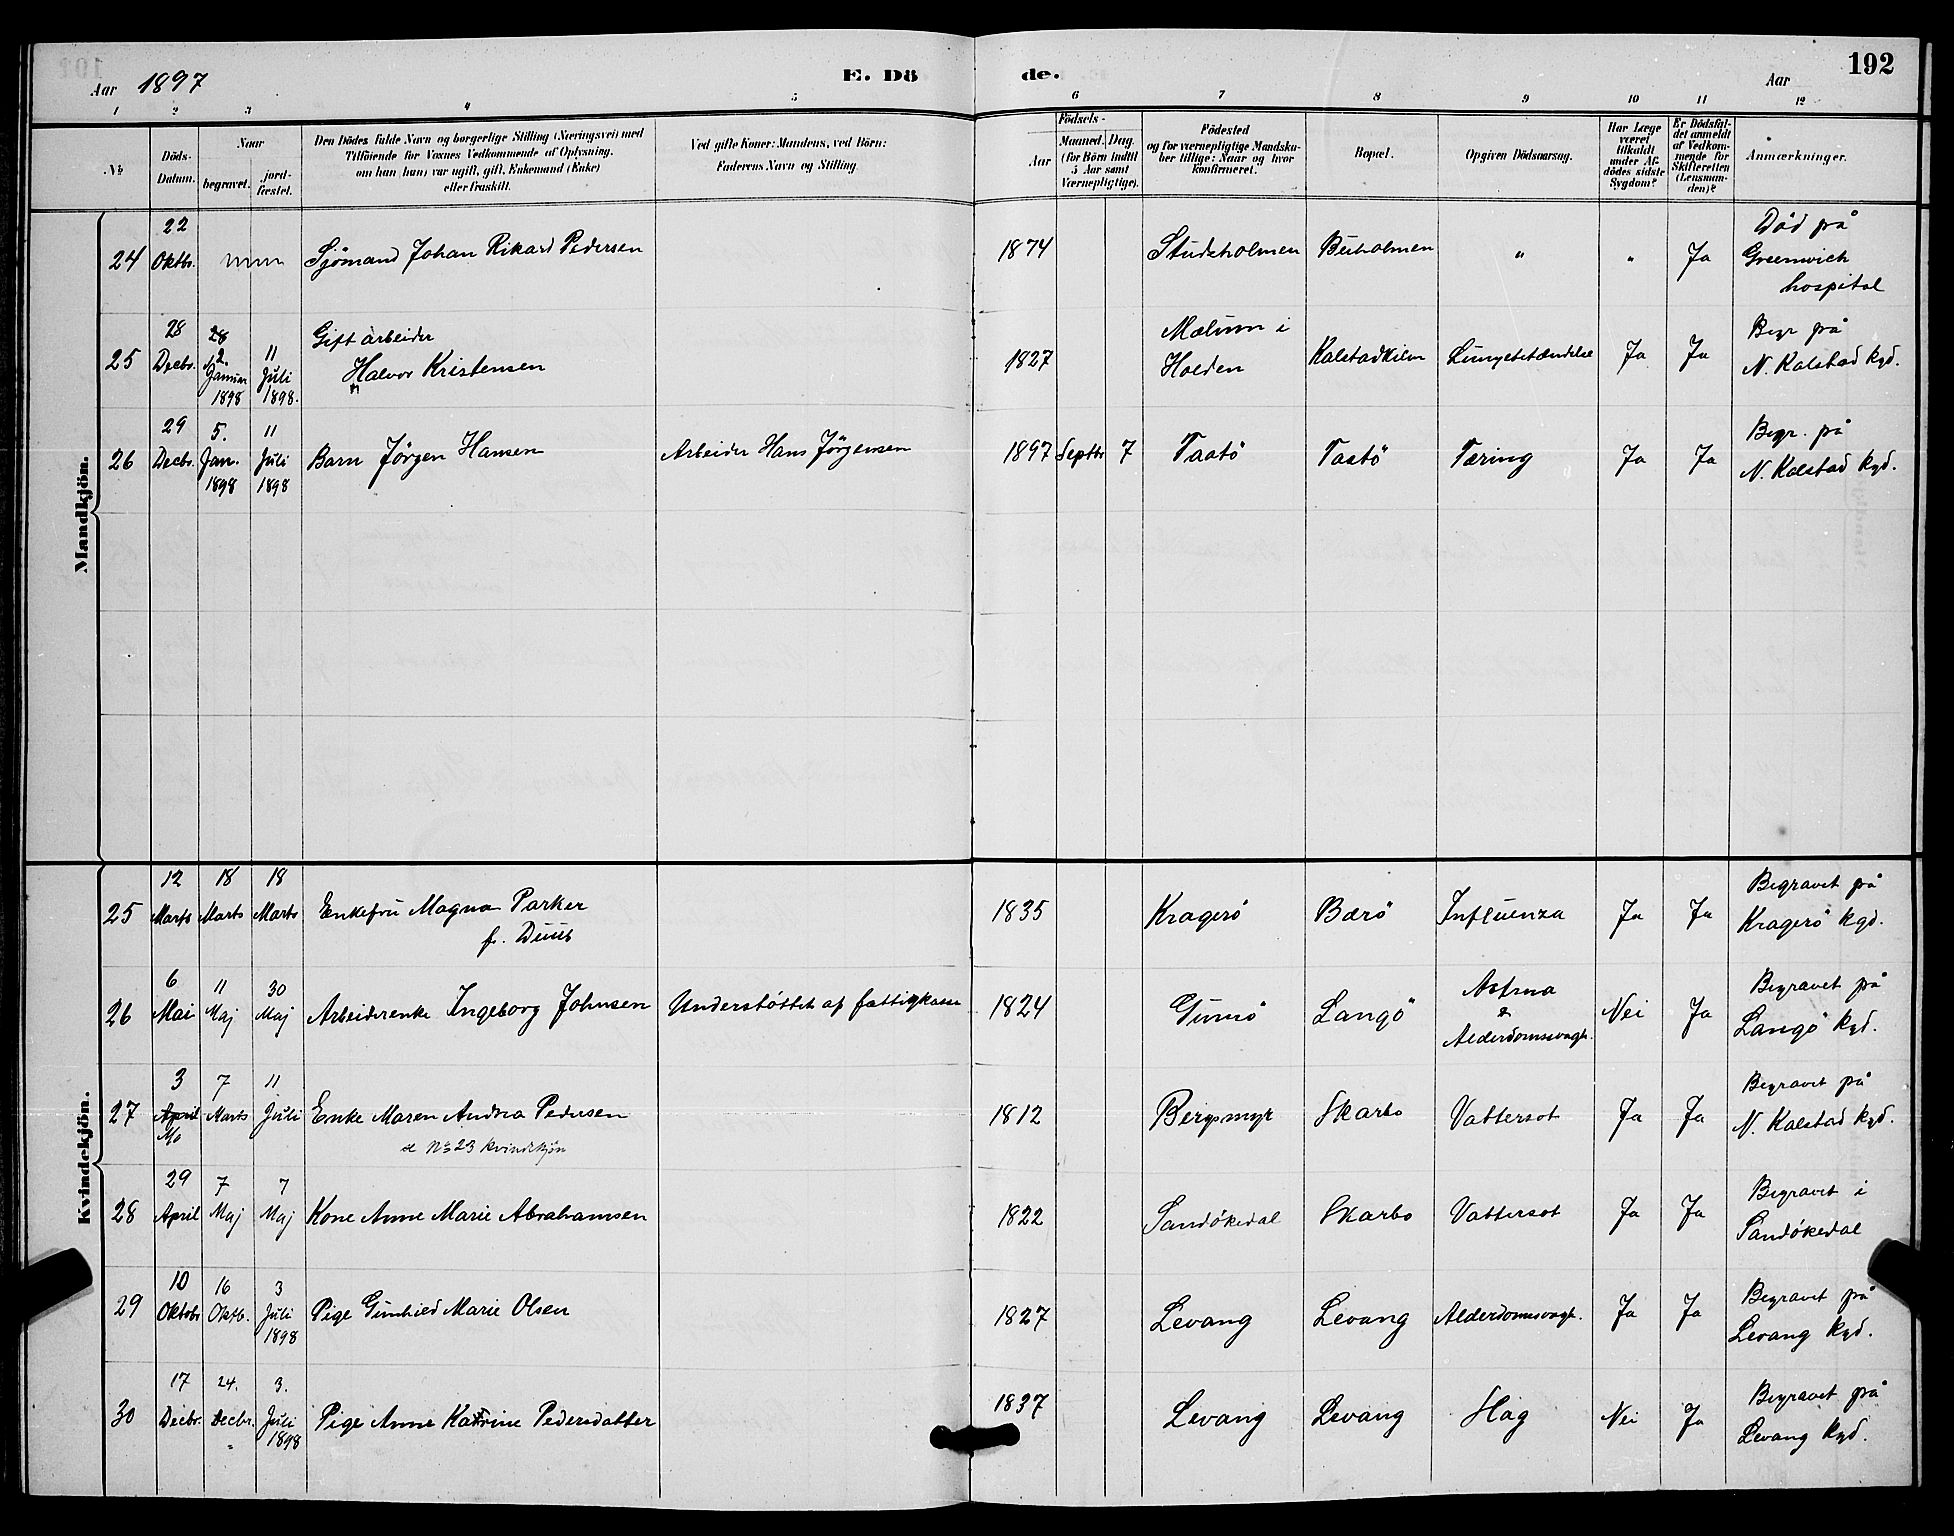 Aar 1897
E. Dö de.
Aar
192
1 2 3 4 5 6 7 8 9 10 11 12
No
Döds-Datum.
Naar
begravet.
jord-fæstet.
Den Dödes fulde Navn og borgerlige Stilling (Næringsvei) med
Tilföiende for Voxnes Vedkommende af Oplysning,
om han (hun) var ugift, gift, Enkemand (Enke)
eller fraskilt.
Ved gifte Koner: Mandens, ved Börn:
Faderens Navn og Stilling.
Födsels-
Aar
Maaned. Dag.
(for Börn indtil
5 Aar samt
Værnepligtige).
Födested
og for værnepligtige Mandska-
ber tillige: Naar og hvor
konfirmeret.
Bopæl.
Opgiven Dödsaarsag.
Har Læge
været
tilkaldt
under Af-
dödes sidste
Sygdom?
Er Dödsfal-
det anmeldt
af Vedkom-
mende for
Skifteretten
(Lensman-
den)?
Anmærkninger.
Mandkjön.
24 22 Oktbr. Sjömand Johan Rikard Pedersen 1874 Studsholmen Buholmen " " Ja Död på Greenwich hospital
25 28 Decbr. 28 2. Januar 1898 11 Juli 1898. Gift arbeider Halvor Kristensen 1827 Mælum i Holden Kalstadkilen Lungebetændelse Ja Ja Begr på N. Kalstad kgd.
26 29 Decbr. 5. Jan. 1898 11 Juli 1898 Barn Jörgen Hansen Arbeider Hans Jörgensen 1897 Septbr 7 Taatö Taatö Tæring Ja Ja Begr. på N. Kalstad kgd.
Kvindekjön.
25 12 Marts 18 Marts 18 Marts Enkefru Magna Parker f. Duus 1835 Kragerö Bærö Influenza Ja Ja Begravet på Kragerö kgd.
26 6 Mai 11 Maj 30 Maj Arbeiderenke Ingeborg Johnsen Understöttet af fattigkasse 1824 Gumö Langö Astma & Alderdomssvagh. Nei Ja Begravet på Langö kgd.
27 3 April Mo 7 Marts 11 Juli Enke Maren Andrea Pedersen se No 23 kvindekjön 1812 Bergsmyr Skarbo Vattersot Ja Ja Begravet på N. Kalstad kgd.
28 29 April 7 Maj 7 Maj Kone Anne Marie Abrahamsen 1822 Sandökedal Skarbo Vattersot Ja Ja Begravet i Sandökedal
29 10 Oktobr 16 Oktb. 3 Juli 1898 Pige Gunhild Marie Olsen 1827 Levang Levang Alderdomssvagh. Ja Ja Begravet på Levang kgd.
30 17 Decbr. 24. Decbr. " 3. Juli 1898 Pige Anne Katrine Pedersdatter 1837 Levang Levang Slag Nei Ja Begravet på Levang kgd.